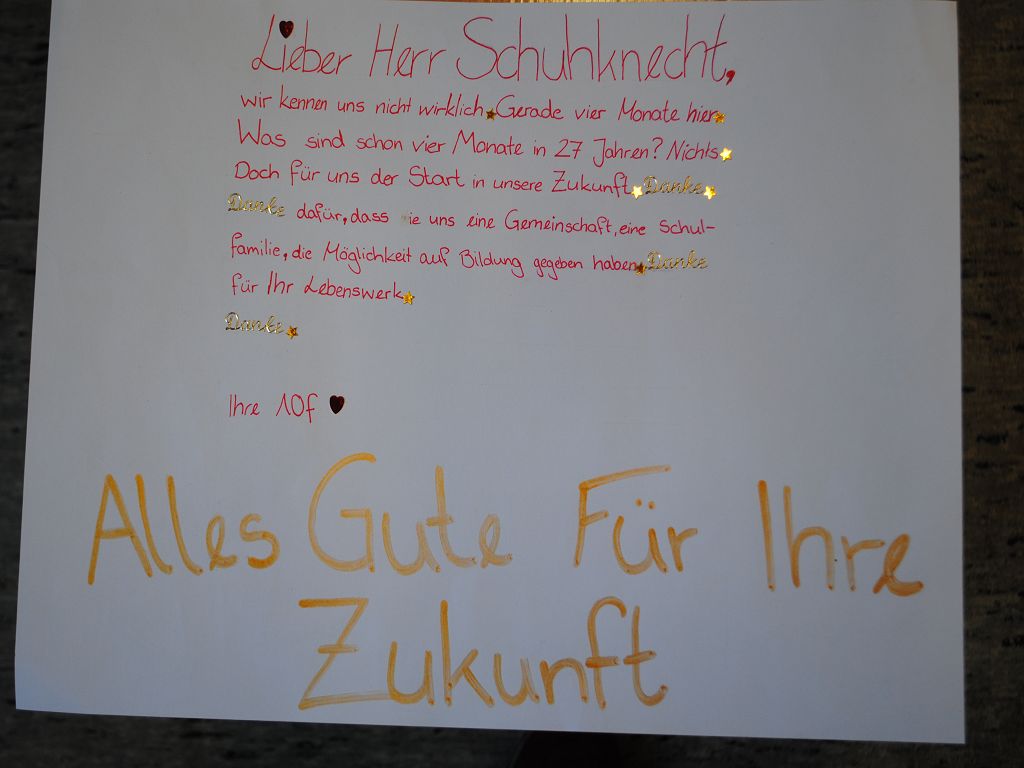 Lieber Herr Schuhknecht,
wir kennen uns nicht wirklich Gerade vier Monate hier
Was sind schon vier Monate in 27 Jahren? Nichts
Doch für uns der Start in unsere Zukunft Danke
Danke dafür, dass ie uns eine Gemeinschaft, eine Schul-
familie, die Möglichkeit auf Bildung gegeben haben Danke
für Ihr Lebenswerk
Danke
Ihre 10f
Alles Gute Für Ihre
Zukunft